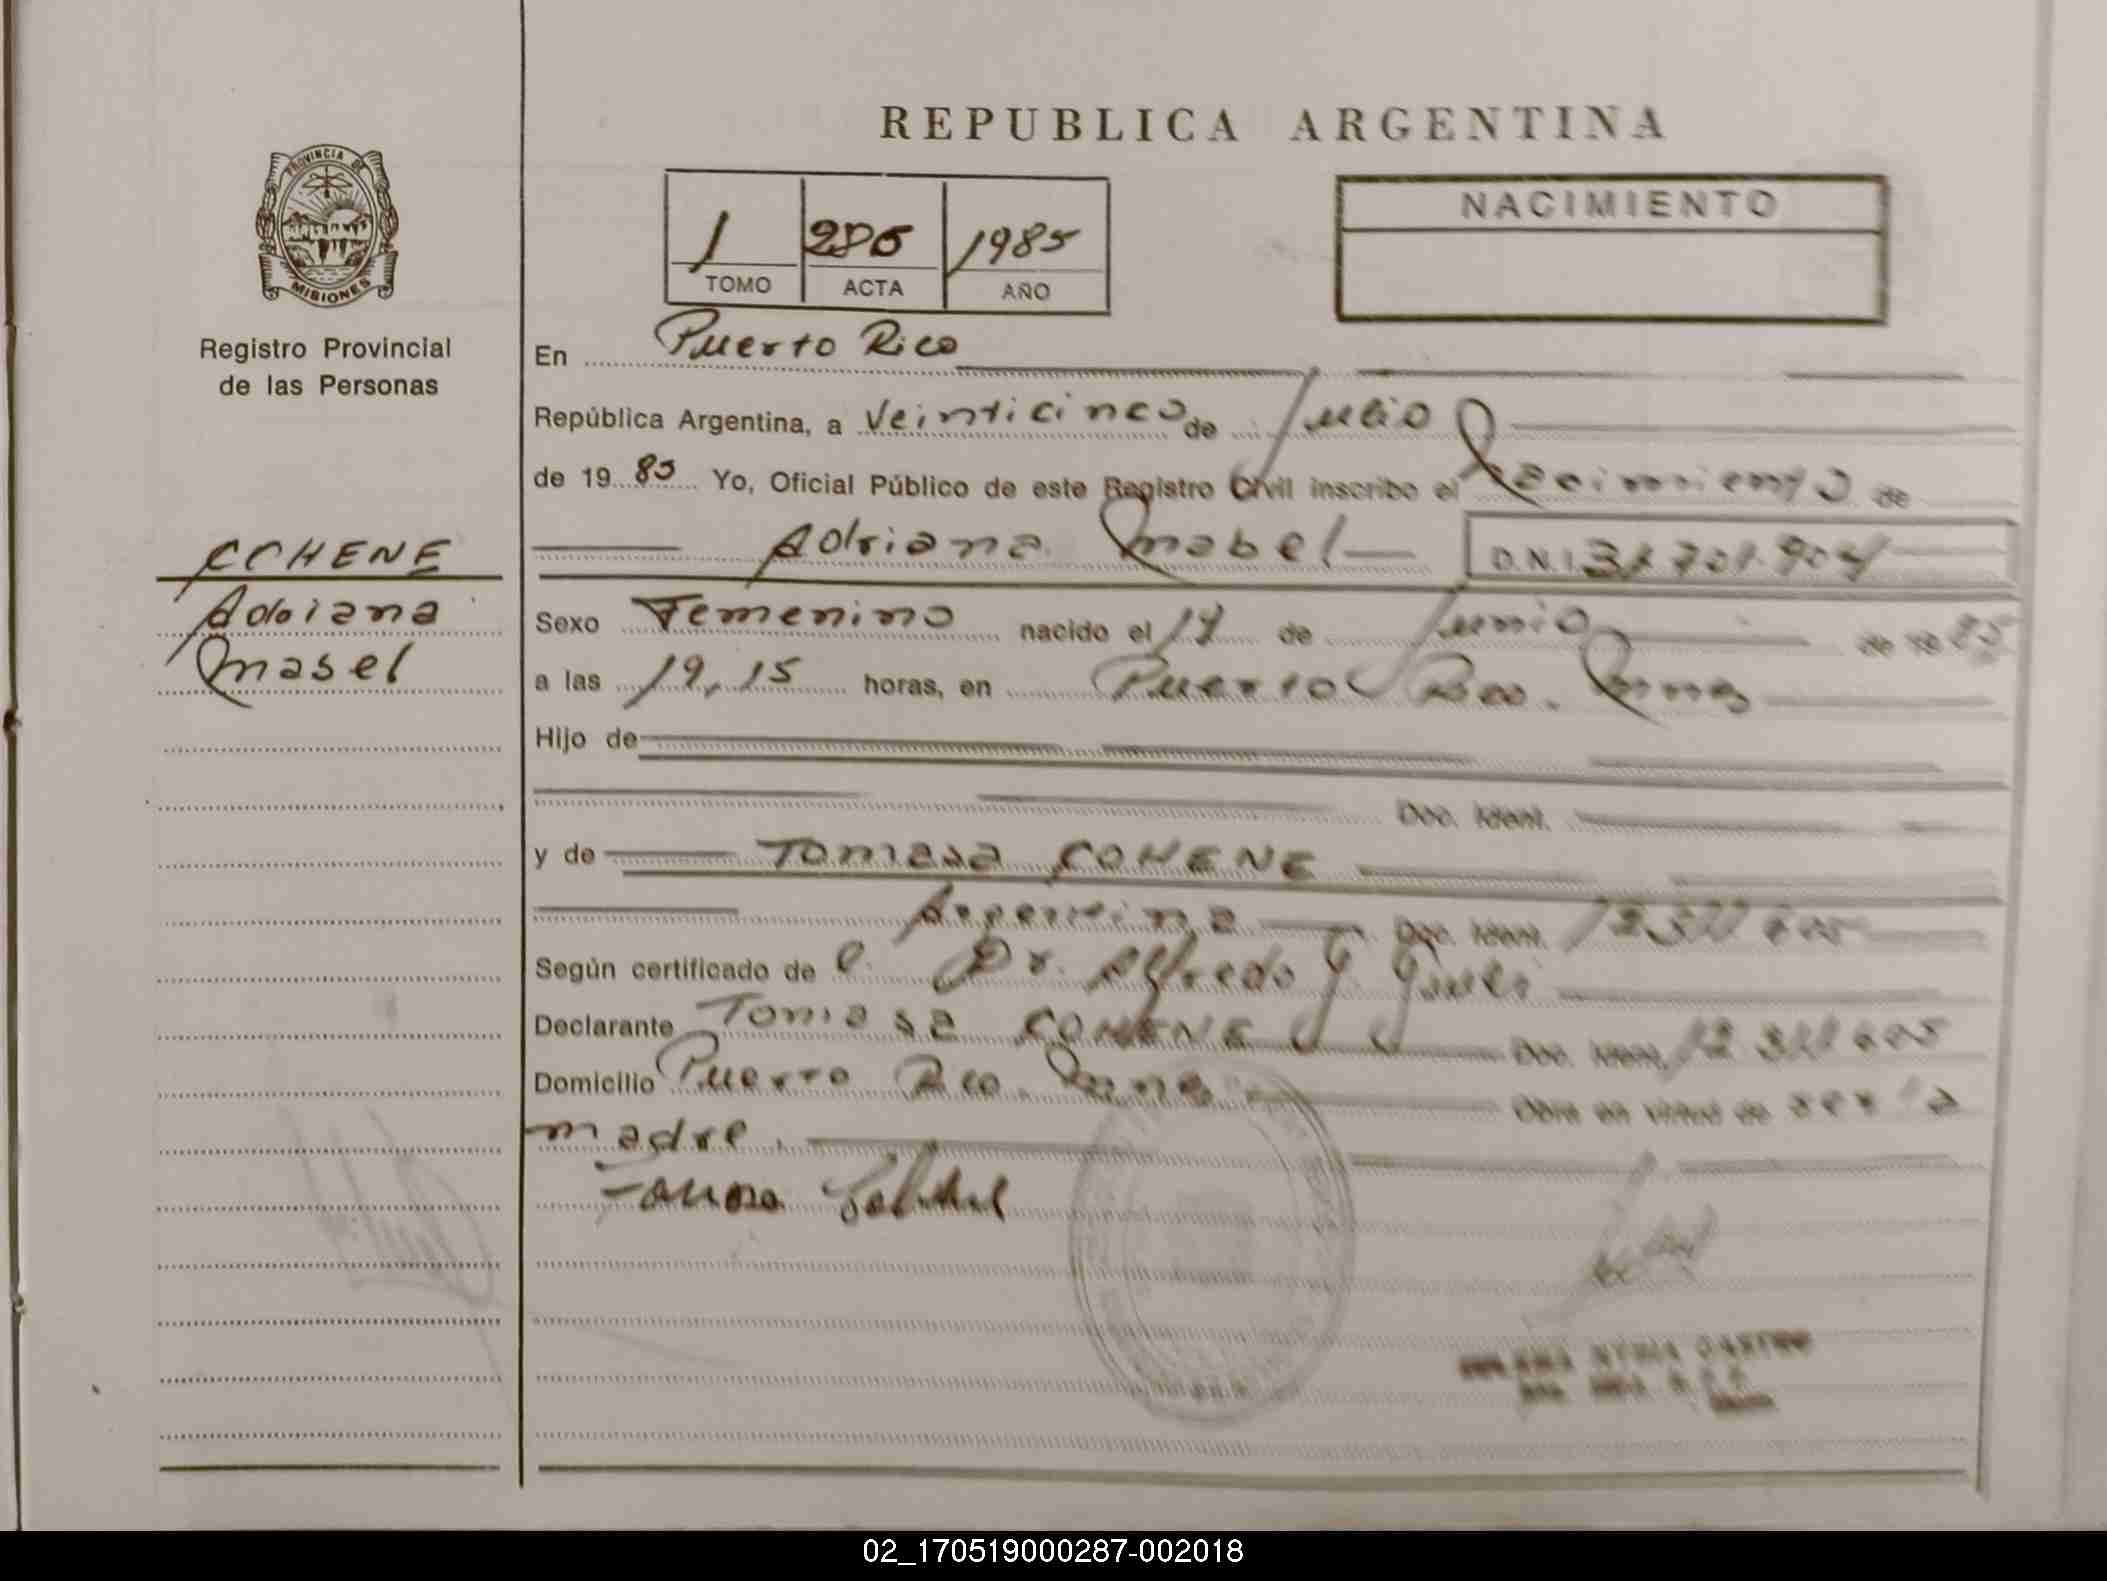 REPUBLICA ARGENTINA
PROVINCIA DE
MISIONES
Registro Provincial
de las Personas
1 1985
TOMO ACTA AÑO
NACIMIENTO
En Puerto Rico
República Argentina, a Veinticinco de Julio
de 19 85 Yo, Oficial Público de este Registro Civil inscribo el Nacimiento de
COHENE
Adriana
Mabel
Adriana Mabel D.N.I.
Sexo Femenino nacido el de Junio de 19 85
a las 19,15 horas, en Puerto Rico. Mnes
Hijo de
Doc. Ident.
y de Tomasa COHENE
Argentina Doc. Ident.
Según certificado de Dr. Alfredo
Declarante Tomasa COHENE Doc. Ident.
Domicilio Puerto Rico. Mnes Obra en virtud de ser la
madre.
CASTRO
02_170519000287-002018